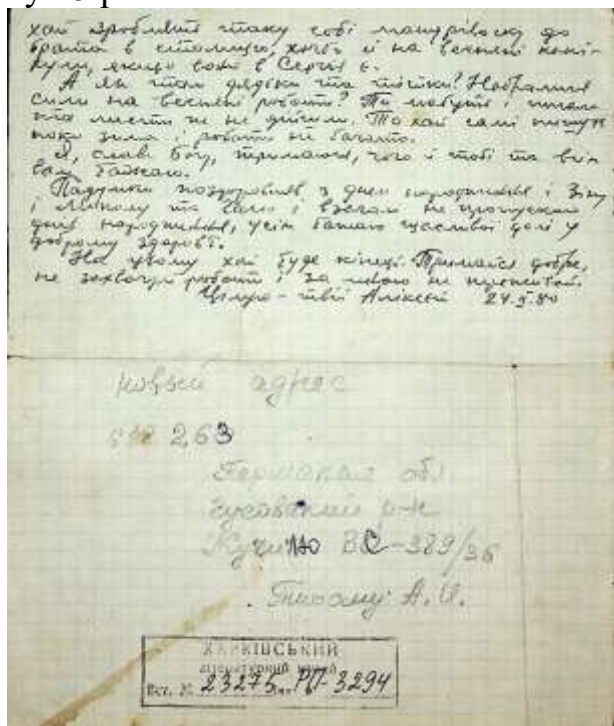 хай зроблять таку собі мандрівочку до
брата в столицю, хоча й на весняні кані-
кули, якщо воно в Сергія є.
А як там дядьки та тітки? Набралися
сили на весняні роботи? Ти мабуть і
листи не
пока зима і роботи не багато.
Я, слава Богу, тримаюся, чого й тобі та всім
вам бажаю.
Подумки поздоровляв з днем народження і Зіну
і Миколу та Валю і взагалі не пропускаю
днів народження, усім бажаю щасливої долі у
доброму здоров'ї.
На цьому хай буде кінець. Тримайся добре,
не захворій роботи і за мною не
Щиро - твій Алексій 24.5.80
новый адрес
618263
Пермская обл.
Чусовский р-н
Кучино ВС-389/36
Тихому А. И.
ХАРКІВСЬКИЙ
літературний музей
Вст. № 23275 РП-3294